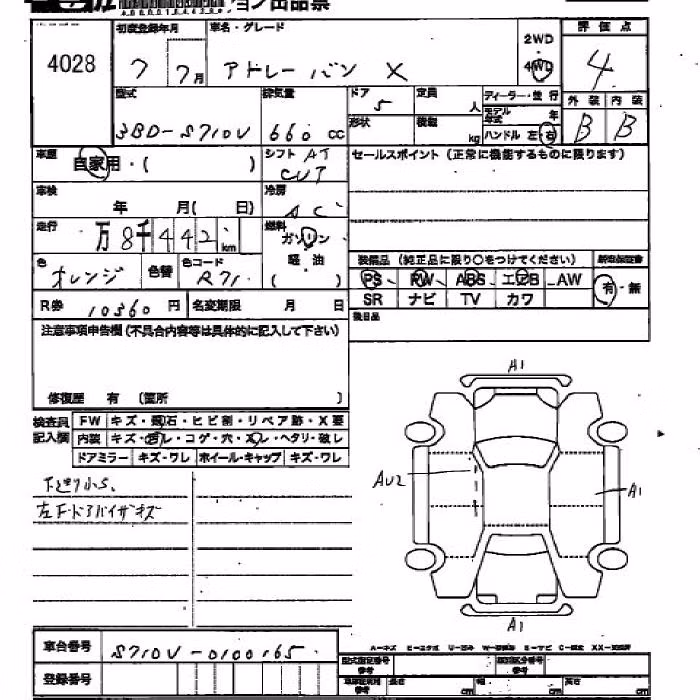 ョン出品票
4028
初度登録年月
車名・グレード
7 7月
アトレー バン X
2WD
4WD
評価点
4
型式
3BD-S710V
排気量
660 cc
ドア
5
定員
人
ディーラー・並行
モデル年式
年
形状
積載
kg
ハンドル 左 右
外装 内装
B B
車歴
自家用・( )
シフト AT
CVT
セールスポイント (正常に機能するものに限ります)
車検
年 月( 日)
冷房
AC
走行
万8千442 km
燃料
ガソリン
軽・油
( )
色
オレンジ
色替
色コード
R71
装備品 (純正品に限り○をつけてください)
新車保証書
PS PW ABS エアB AW
SR ナビ TV カワ
有・無
R券 10360 円
名変期限 月 日
後日品
注意事項申告欄 (不具合内容等は具体的に記入して下さい)
修復歴 有 (箇所 )
検査員記入欄
FW キズ・飛石・ヒビ割・リペア跡・X要
内装 キズ・汚レ・コゲ・穴・スレ・ヘタリ・破レ
ドアミラー キズ・ワレ ホイール・キャップ キズ・ワレ
左Fドアバイザーキズ
A1
AU2
A1
A1
車台番号 S710V-0100165
登録番号
A-キズ
型式指定番号
長さ cm
幅 cm
高さ cm